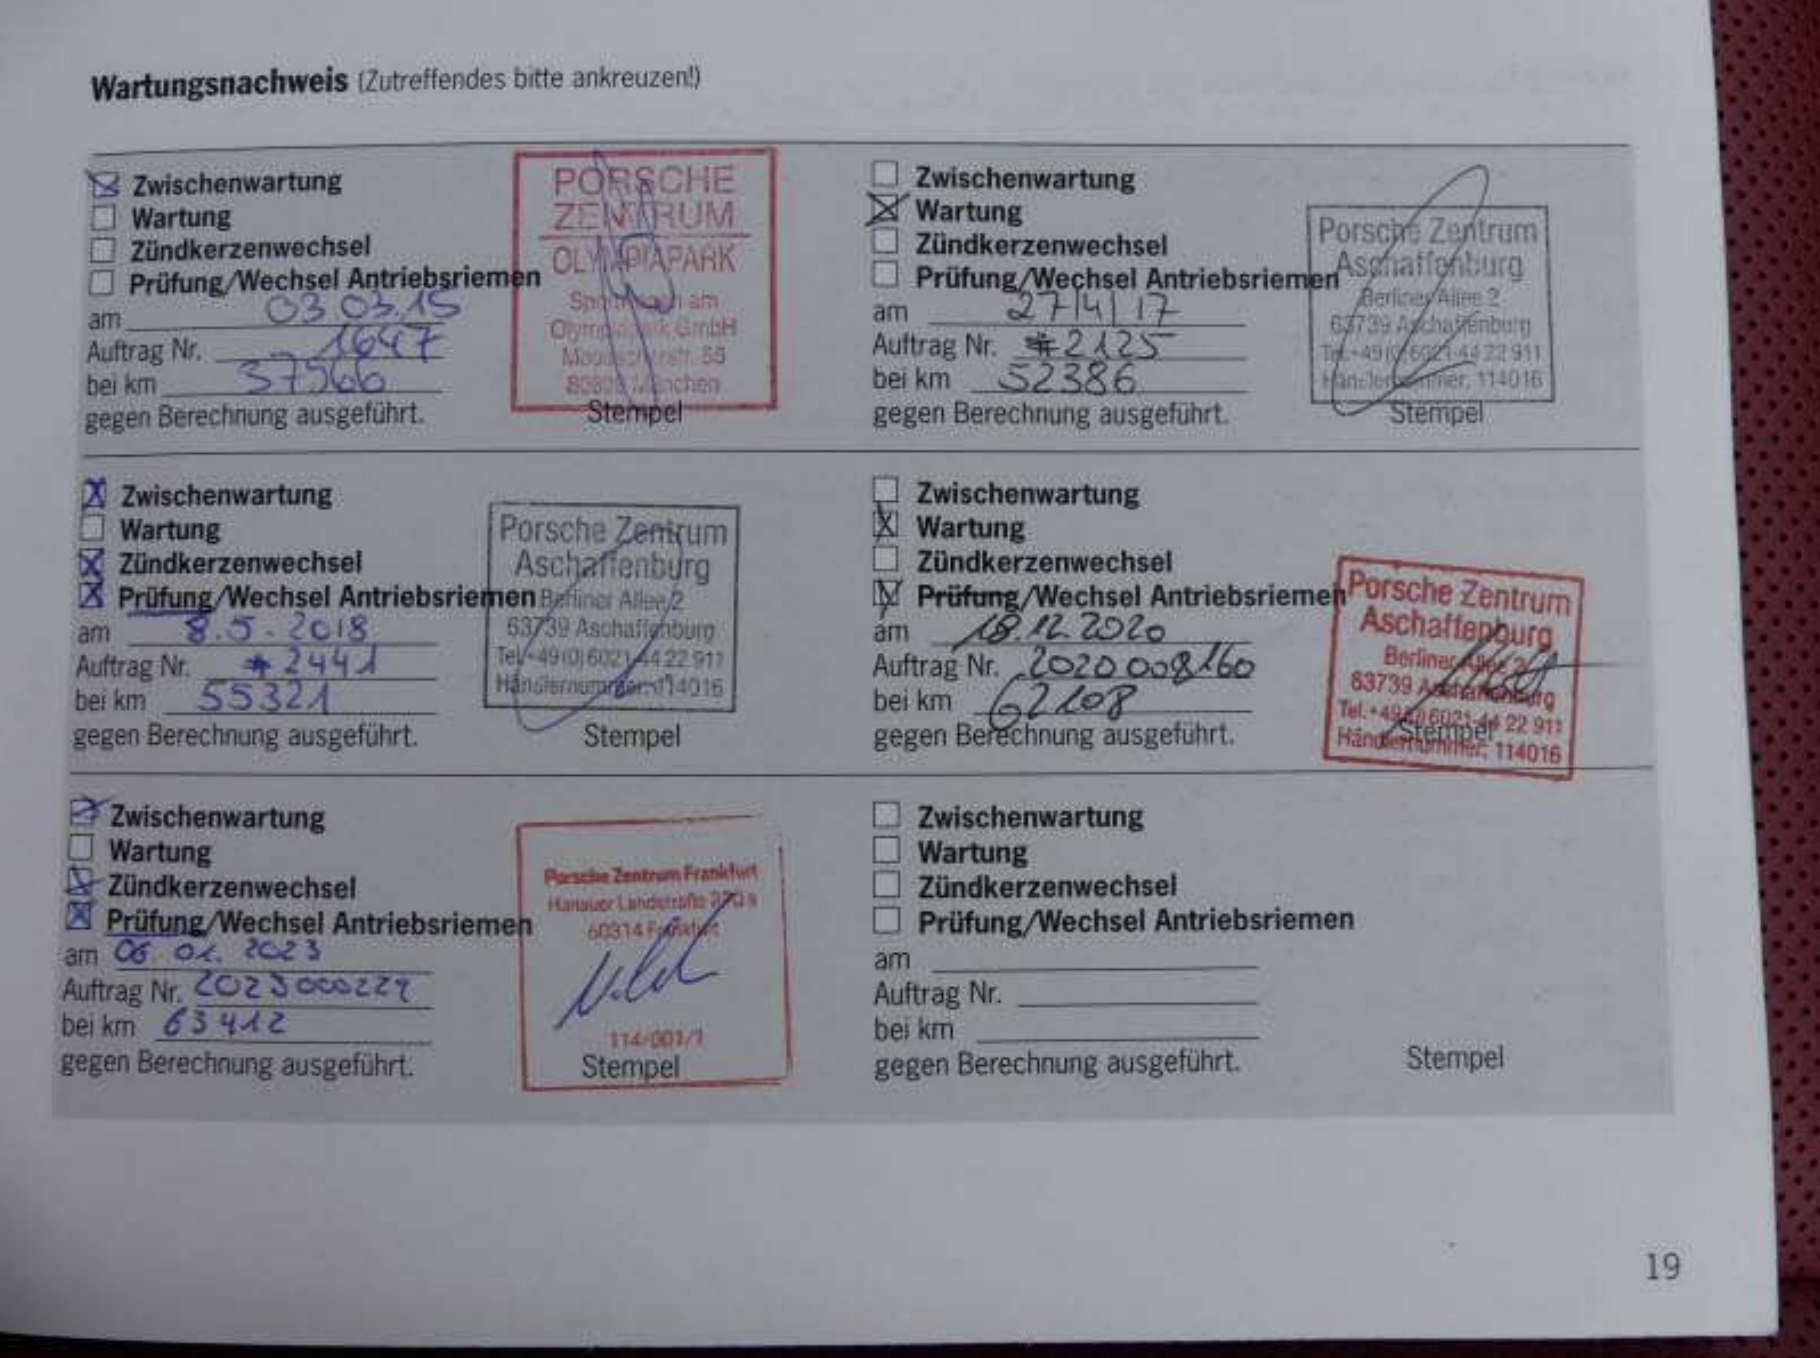 Wartungsnachweis (Zutreffendes bitte ankreuzen!)
Zwischenwartung
Wartung
Zündkerzenwechsel
Prüfung/Wechsel Antriebsriemen
am 03.03.15
Auftrag Nr. 1647
bei km 37566
gegen Berechnung ausgeführt.
PORSCHE
ZENTRUM
OLYMPIAPARK
am
Olympiapark GmbH
München
Stempel
Zwischenwartung
Wartung
Zündkerzenwechsel
Prüfung/Wechsel Antriebsriemen
am 27/4/17
Auftrag Nr. #2125
bei km 52386
gegen Berechnung ausgeführt.
Porsche Zentrum
Aschaffenburg
Berliner Allee 2
63739 Aschaffenburg
Tel.+49(0)6021-44 22 911
Händlernummer: 114016
Stempel
Zwischenwartung
Wartung
Zündkerzenwechsel
Prüfung/Wechsel Antriebsriemen
am 8.5.2018
Auftrag Nr. #2441
bei km 55321
gegen Berechnung ausgeführt.
Porsche Zentrum
Aschaffenburg
Berliner Allee 2
63739 Aschaffenburg
Tel.+49(0)6021-44 22 911
Händlernummer: 114016
Stempel
Zwischenwartung
Wartung
Zündkerzenwechsel
Prüfung/Wechsel Antriebsriemen
am 18.12.2020
Auftrag Nr. 2020008160
bei km 62108
gegen Berechnung ausgeführt.
Porsche Zentrum
Aschaffenburg
Berliner Allee 2
63739 Aschaffenburg
Tel.+49(0)6021-44 22 911
Händlernummer: 114016
Stempel
Zwischenwartung
Wartung
Zündkerzenwechsel
Prüfung/Wechsel Antriebsriemen
am 06.01.2023
Auftrag Nr. 2023000227
bei km 63412
gegen Berechnung ausgeführt.
Porsche Zentrum Frankfurt
Hanauer Landstraße
60314 Frankfurt
114/001/1
Stempel
Zwischenwartung
Wartung
Zündkerzenwechsel
Prüfung/Wechsel Antriebsriemen
am
Auftrag Nr.
bei km
gegen Berechnung ausgeführt.
Stempel
19